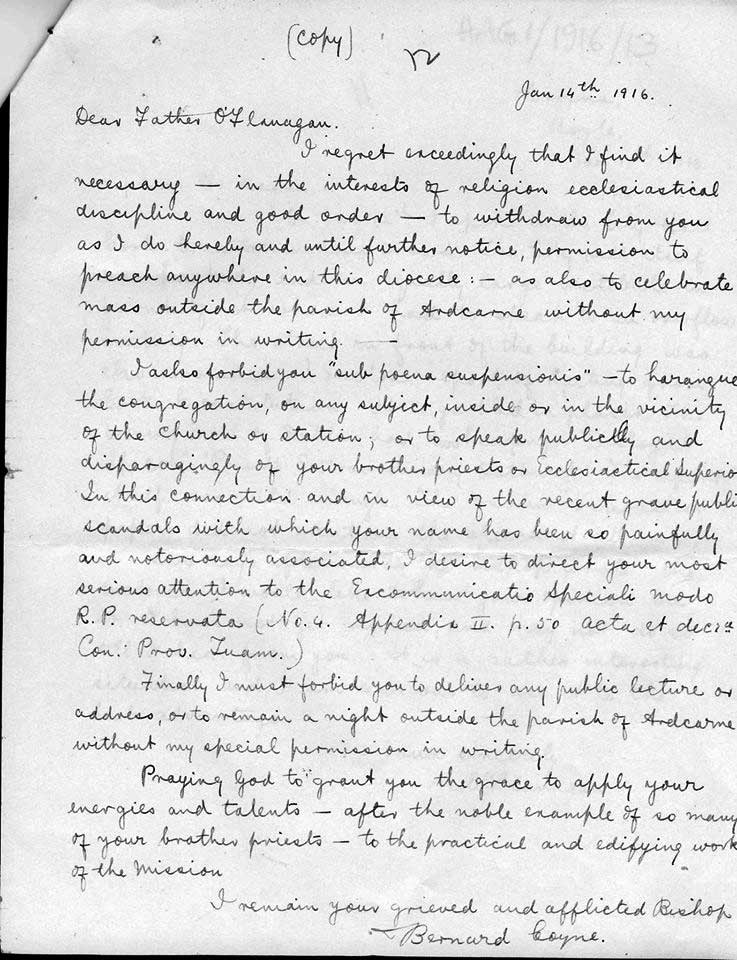 (Copy)
Jan 14th 1916.
Dear Father O'Flanagan.
I regret exceedingly that I find it
necessary — in the interests of religion ecclesiastical
discipline and good order — to withdraw from you
as I do hereby and until further notice, permission to
preach anywhere in this diocese: — as also to celebrate
mass outside the parish of Ardcarne without my
permission in writing. —
I also forbid you "sub poena suspensionis" — to harangue
the congregation, on any subject, inside or in the vicinity
of the church or station; or to speak publicly and
disparagingly of your brother priests or Ecclesiactical Superio
In this connection and in view of the recent grave publi
scandals with which your name has been so painfully
and notoriously associated, I desire to direct your most
serious attention to the Excommunicatio Speciali modo
R.P. reservata (No. 4. Appendix II. p. 50 Acta et decra
Con: Prov. Tuam.)
Finally I must forbid you to deliver any public lecture or
address, or to remain a night outside the parish of Ardcarne
without my special permission in writing.
Praying God to grant you the grace to apply your
energies and talents — after the noble example of so many
of your brother priests — to the practical and edifying work
of the Mission
I remain your grieved and afflicted Bishop
Bernard Coyne.